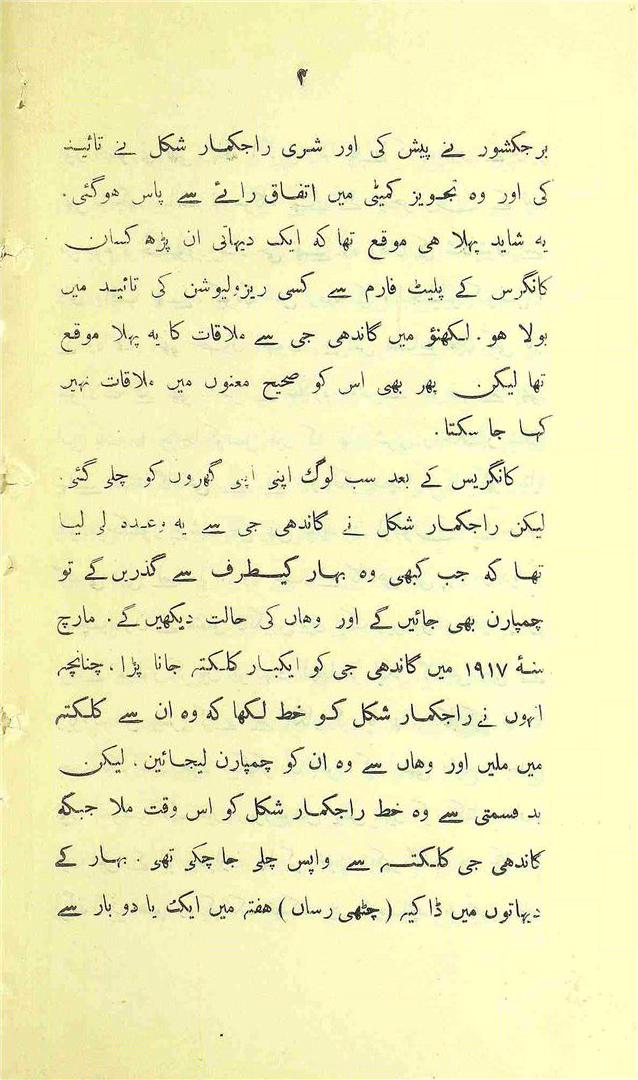 ۳
برجکشور نے پیش کی اور شری راجکمار شکل نے تائید
کی اور وہ تجویز کمیٹی میں اتفاق رائے سے پاس ہوگئی.
یہ شاید پہلا ہی موقع تھا کہ ایک دیہاتی ان پڑھ کسان
کانگرس کے پلیٹ فارم سے کسی ریزولیوشن کی تائید میں
بولا ہو. لکھنؤ میں گاندھی جی سے ملاقات کا یہ پہلا موقع
تھا لیکن پھر بھی اس کو صحیح معنوں میں ملاقات نہیں
کہا جا سکتا.
کانگریس کے بعد سب لوگ اپنی اپنی گھروں کو چلی گئی.
لیکن راجکمار شکل نے گاندھی جی سے یہ وعدہ لے لیا
تھا کہ جب کبھی وہ بہار کیطرف سے گذریں گے تو
چمپارن بھی جائیں گے اور وہاں کی حالت دیکھیں گے. مارچ
سنۂ ۱۹۱۷ میں گاندھی جی کو ایکبار کلکتہ جانا پڑا. چنانچہ
انہوں نے راجکمار شکل کو خط لکھا کہ وہ ان سے کلکتہ
میں ملیں اور وہاں سے وہ ان کو چمپارن لیجائین. لیکن
بد قسمتی سے وہ خط راجکمار شکل کو اس وقت ملا جبکہ
گاندھی جی کلکتہ سے واپس چلی جا چکی تھی. بہار کے
دیہاتوں میں ڈاکیہ (چٹھی رساں) ہفتہ میں ایک یا دو بار سے